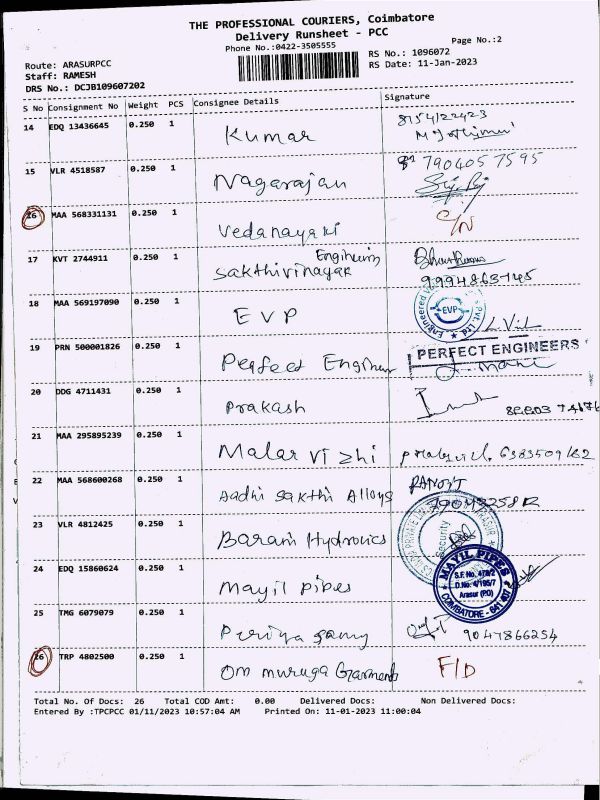 THE PROFESSIONAL COURIERS, Coimbatore
Delivery Runsheet - PCC
Phone No.:0422-3505555
Page No.:2
Route: ARASURPCC
RS No.: 1096072
Staff: RAMESH
RS Date: 11-Jan-2023
DRS No.: DCJB109607202
S No Consignment No Weight PCS Consignee Details Signature
14 EDQ 13436645 0.250 1 Kumar 8154122423
15 VLR 4518587 0.250 1 Nagarajan 7904057595
16 MAA 568331131 0.250 1 Vedanayaki C/N
17 KVT 2744911 0.250 1 Sakthivinayak Engineering
9994863745
18 MAA 569197090 0.250 1 EVP EVP
19 PRN 500001826 0.250 1 Perfect Engineer PERFECT ENGINEERS
Mani
20 DDG 4711431 0.250 1 Prakash
21 MAA 295895239 0.250 1 Malar vizhi 6383509182
22 MAA 568600268 0.250 1 Aadhi sakthi Alloys RANJIT
23 VLR 4812425 0.250 1 Baram Hydronics Security
24 EDQ 15860624 0.250 1 Mayil pipes MAYIL PIPES
S.F. No. 478/2
D.No. 4/195/7
Arasur (PO)
COIMBATORE - 641 407
25 TMG 6079079 0.250 1 Puriya samy 9047866254
26 TRP 4802500 0.250 1 Om muruga Garments F/D
Total No. Of Docs: 26 Total COD Amt: 0.00 Delivered Docs: Non Delivered Docs:
Entered By :TPCPCC 01/11/2023 10:57:04 AM Printed On: 11-01-2023 11:00:04